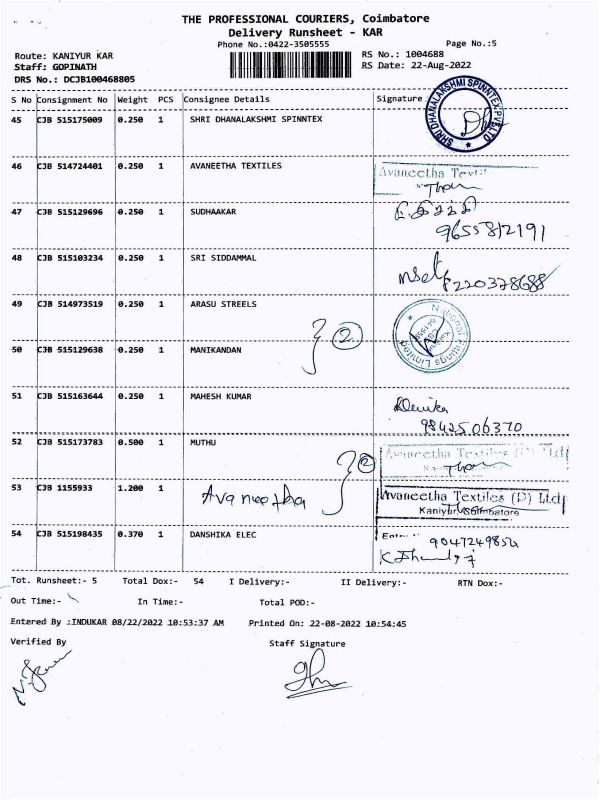 THE PROFESSIONAL COURIERS, Coimbatore
Delivery Runsheet - KAR
Phone No.:0422-3505555
Page No.:5
Route: KANIYUR KAR
RS No.: 1004688
Staff: GOPINATH
RS Date: 22-Aug-2022
DRS No.: DCJB100468805
S No Consignment No Weight PCS Consignee Details Signature
45 CJB 515175009 0.250 1 SHRI DHANALAKSHMI SPINNTEX
SHRI DHANALAKSHMI SPINNTEX PVT LTD
46 CJB 514724401 0.250 1 AVANEETHA TEXTILES
Avaneetha Textil
47 CJB 515129696 0.250 1 SUDHAAKAR
9655812191
48 CJB 515103234 0.250 1 SRI SIDDAMMAL
8220378688
49 CJB 514973519 0.250 1 ARASU STREELS
2
50 CJB 515129638 0.250 1 MANIKANDAN
51 CJB 515163644 0.250 1 MAHESH KUMAR
9842506370
52 CJB 515173783 0.500 1 MUTHU
2
Avaneetha Textiles (P) Ltd
53 CJB 1155933 1.200 1 Avaneetha
Avaneetha Textiles (P) Ltd
54 CJB 515198435 0.370 1 DANSHIKA ELEC
9047249854
Tot. Runsheet:- 5 Total Dox:- 54 I Delivery:- II Delivery:- RTN Dox:-
Out Time:- In Time:- Total POD:-
Entered By :INDUKAR 08/22/2022 10:53:37 AM Printed On: 22-08-2022 10:54:45
Verified By Staff Signature